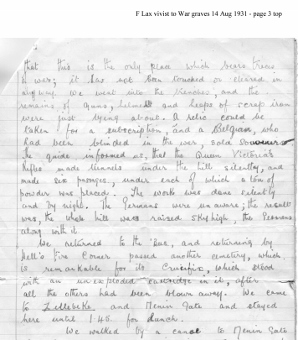 F Lax vivist to War graves 14 Aug 1931 - page 3 top
that this is the only place which bears traces
of war; it has not been touched or cleared in
any way. We went into the trenches, and the
remains of guns, helmets and heaps of scrap iron
were just lying about. A relic could be
taken for a subscription, and a Belgian, who
had been blinded in the war, sold souvenirs
The guide informed us, that the Queen Victoria's
Rifles made tunnels under the hill silently, and
made six prongs, under each of which a ton of
powder was placed. The work was done silently
and by night. The Germans were unaware; the result
was, the whole hill was raised sky high, the Germans
along with it.
We returned to the 'bus, and returning by
Hell's Fire Corner passed another cemetery, which
is remarkable for its Crucifix, which stood
with an unexploded cartridge in it, after
all the others had been blown away. We came
to Zillebeke and Menin Gate and stayed
here until 1.45 for lunch.
We walked by a canal to Menin Gate